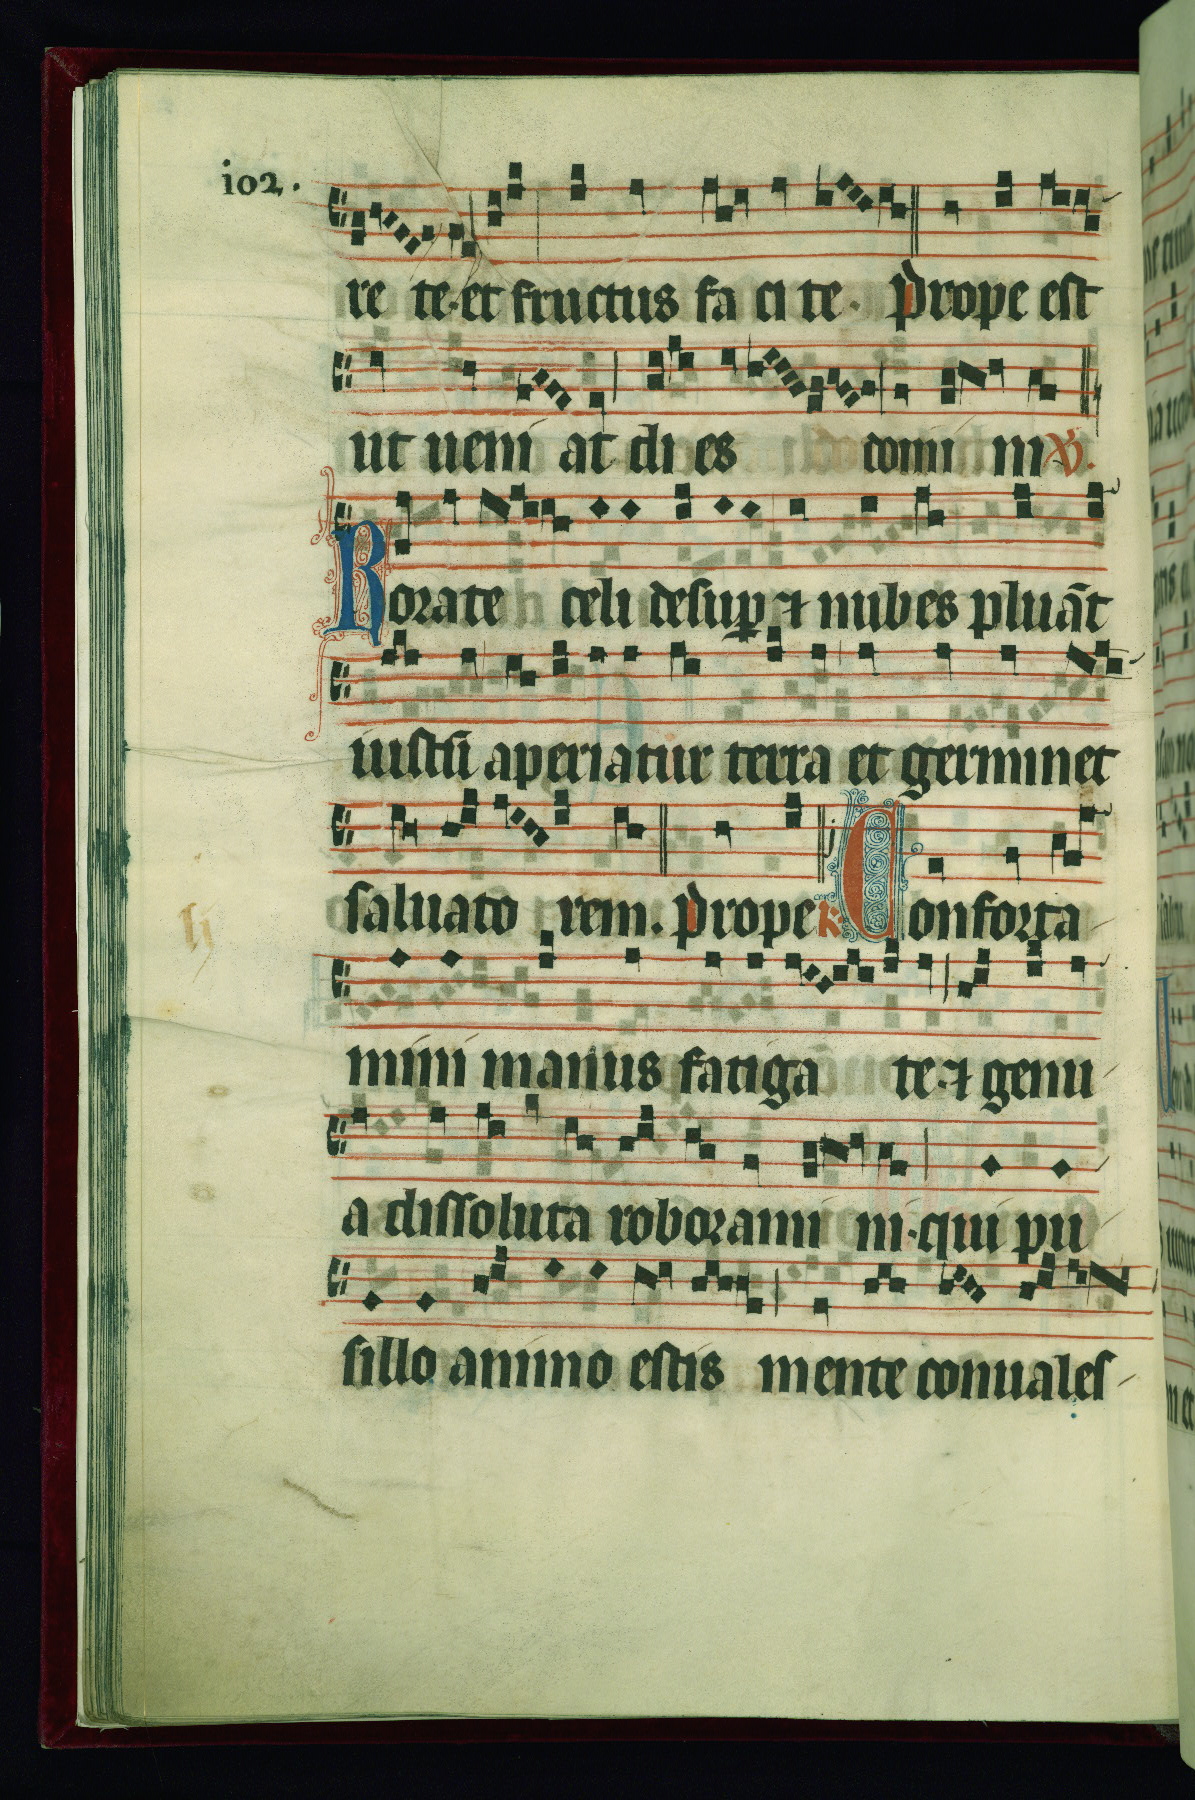 102.
re te·et fructus fa ci te· Prope est
ut ueni at di es domi ni ℣.
Rorate celi desuꝑ ⁊ nubes pluāt
iustū aperiatur terra et germinet
saluato rem. Prope ℟ Conforta
mini manus fatiga te·⁊ genu
a dissoluta roborami ni·qui pu
sillo animo estis mente conuales